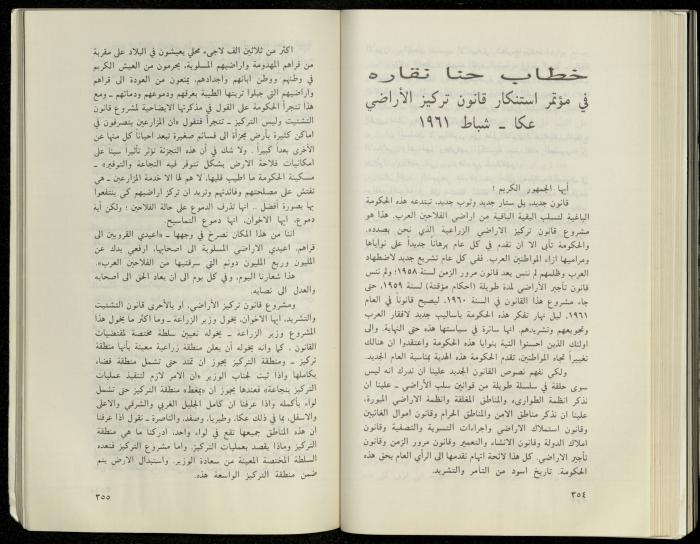 خطاب حنا نقاره
في مؤتمر استنكار قانون تركيز الأراضي
عكا ــ شباط ١٩٦١
أيها الجمهور الكريم !
قانون جديد، بل ستار جديد وثوب جديد، تبتدعه هذه الحكومة
الباغية لتسلب البقية الباقية من اراضي الفلاحين العرب. هذا هو
مشروع قانون تركيز الاراضي الزراعية الذي نحن بصدده.
والحكومة تأبى الا ان تقدم في كل عام برهاناً جديداً على نواياها
ومراميها ازاء المواطنين العرب. ففي كل عام تشريع جديد لاضطهاد
العرب وظلمهم لم ننس بعد قانون مرور الزمن لسنة ١٩٥٨؛ ولم ننس
قانون تأجير الأراضي لمدة طويلة (احكام مؤقتة) لسنة ١٩٥٩، حتى
جاء مشروع هذا القانون في السنة ١٩٦٠، ليصبح قانوناً في العام
١٩٦١. ليل نهار تفكر هذه الحكومة باساليب جديد لافقار العرب
وتجويعهم وتشريدهم. انها سائرة في سياستها هذه حتى النهاية. والى
اولئك الذين احسنوا النية بنوايا هذه الحكومة واعتقدوا ان هنالك
تغييراً تجاه المواطنين، تقدم الحكومة هذه الهدية بمناسبة العام الجديد.
ولكي نفهم نصوص القانون الجديد علينا ان ندرك انه ليس
سوى حلقة في سلسلة طويلة من قوانين سلب الأراضي ــ علينا ان
نذكر انظمة الطوارىء والمناطق المغلقة وانظمة الاراضي المبورة.
علينا ان نذكر مناطق الامن والمناطق الحرام وقانون اموال الغائبين
وقانون استملاك الاراضي واجراءات التسوية والتصفية وقانون
املاك الدولة وقانون الانشاء والتعمير وقانون مرور الزمن وقانون
تأجير الاراضي. كل هذا لائحة اتهام نقدمها الى الرأي العام بحق هذه
الحكومة. تاريخ اسود من التآمر والتشريد.
٣٥٤
اكثر من ثلاثين الف لاجىء محلي يعيشون في البلاد على مقربة
من قراهم المهدومة واراضيهم المسلوبة، يحرمون من العيش الكريم
في وطنهم ووطن ابائهم واجدادهم، يمنعون من العودة الى قراهم
واراضيهم التي جبلوا تربتها الطيبة بعرقهم ودموعهم ودمائهم ــ ومع
هذا تتجرأ الحكومة على القول في مذكرتها الايضاحية لمشروع قانون
التشتيت وليس التركيز ــ تتجرأ فتقول «ان المزارعين يتصرفون في
اماكن كثيرة بأرض مجزأة الى قسائم صغيرة تبعد احياناً كل منها عن
الأخرى بعداً كبيراً . ولا شك في أن هذه التجزئة تؤثر تأثيراً سيئا على
امكانيات فلاحة الارض بشكل تتوفر فيه النجاعة والتوفير» ــ
مسكينة الحكومة ما اطيب قلبها، لا هم لها الا خدمة المزارعين ــ هي
تفتش على مصلحتهم وفائدتهم وتريد ان تركز اراضيهم كي ينتفعوا
بها بصورة أفضل .. انها تذرف الدموع على حالة الفلاحين ؛ ولكن أية
دموع، ايها الاخوان، انها دموع التماسيح.
اننا من هذا المكان نصرخ في وجهها ــ «اعيدي القرويين الى
قراهم، اعيدي الاراضي المسلوبة الى اصحابها، ارفعي يدك عن
المليون وربع المليون دونم التي سرقتيها من الفلاحين العرب».
هذا شعارنا اليوم، وفي كل يوم الى ان يعاد الحق الى اصحابه
والعدل الى نصابه.
ومشروع قانون تركيز الأراضي، او بالأحرى قانون التشتيت
والتشريد، أيها الاخوان، يخول وزير الزراعة ــ وما اكثر ما يخول هذا
المشروع وزير الزراعة ــ يخوله تعيين سلطة مختصة لمقتضيات
القانون . كما وانه يخوله أن يعلن منطقة زراعية معينة بأنها منطقة
تركيز ــ ومنطقة التركيز يجوز ان تمتد حتى تشمل منطقة قضاء
بكاملها واذا ثبت لجناب الوزير «ان الامر لازم لتنفيذ عمليات
التركيز بنجاعة» فعندها يجوز ان «يمغط» منطقة التركيز حتى تشمل
لواء بأكمله واذا عرفنا ان كامل الجليل الغربي والشرقي والاعلى
والاسفل، بما في ذلك عكا، وطبريا، وصفد، والناصرة ــ نقول اذا عرفنا
ان هذه المناطق جميعها تقع في لواء واحد، ادركنا ما هي منطقة
التركيز وماذا يقصد بعمليات التركيز. واما مشروع التركيز فتعده
السلطة المختصة المعينة من سعادة الوزير. واستبدال الارض يتم
ضمن منطقة التركيز الواسعة هذه.
٣٥٥